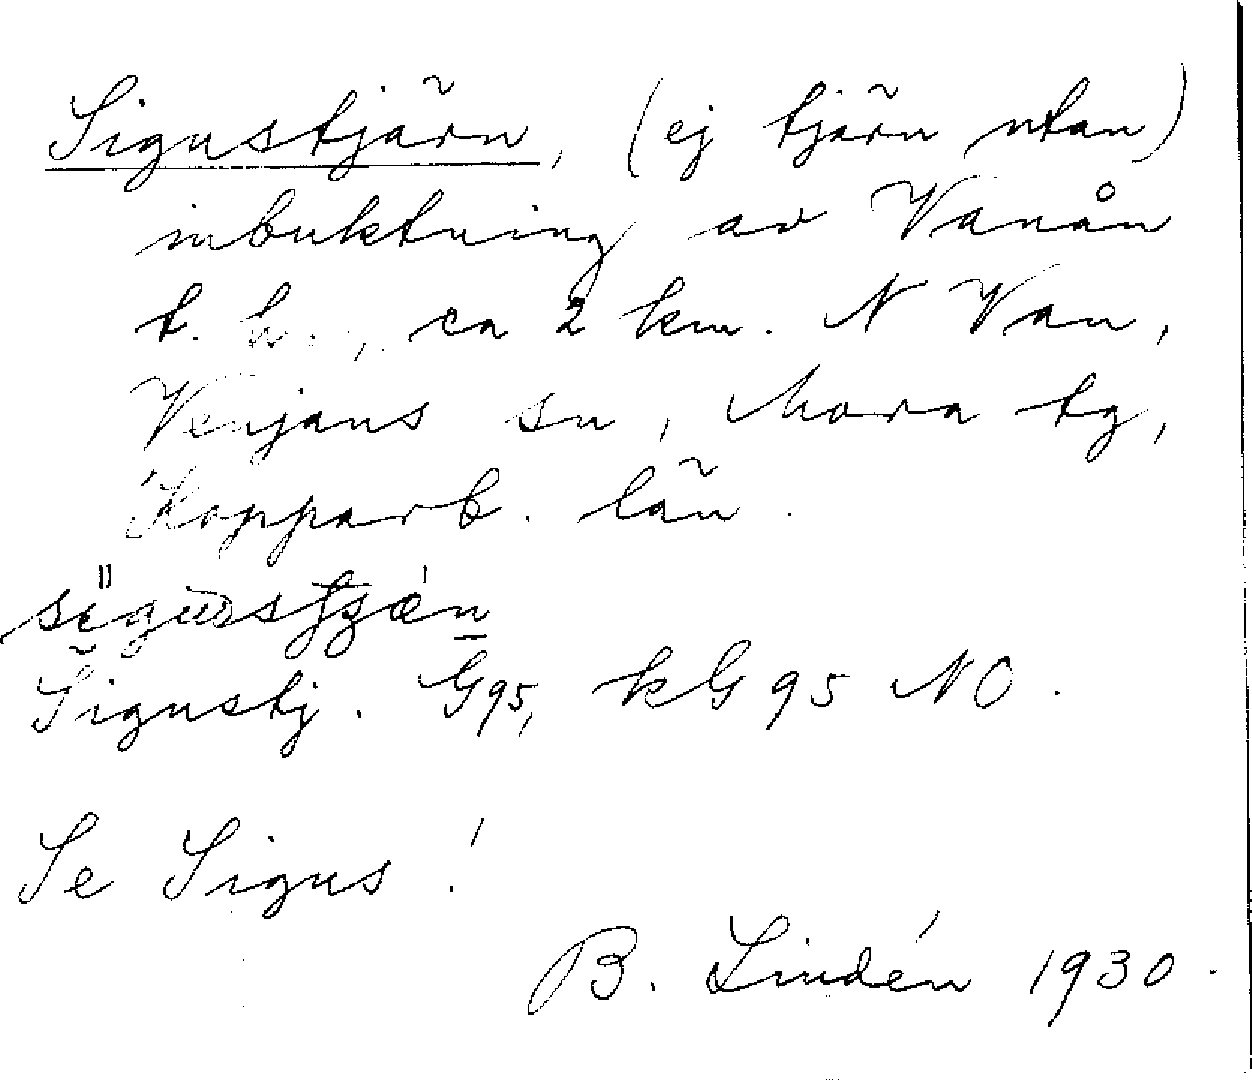 Sigustjärn, (ej tjärn utan)
inbuktning av Vanån
t. h., ca 2 km. N Van,
Venjans sn, Mora tg,
Kopparb. län.
Sigustj. G95, kG 95 NO.
Se Sigus!
B. Lindén 1930.